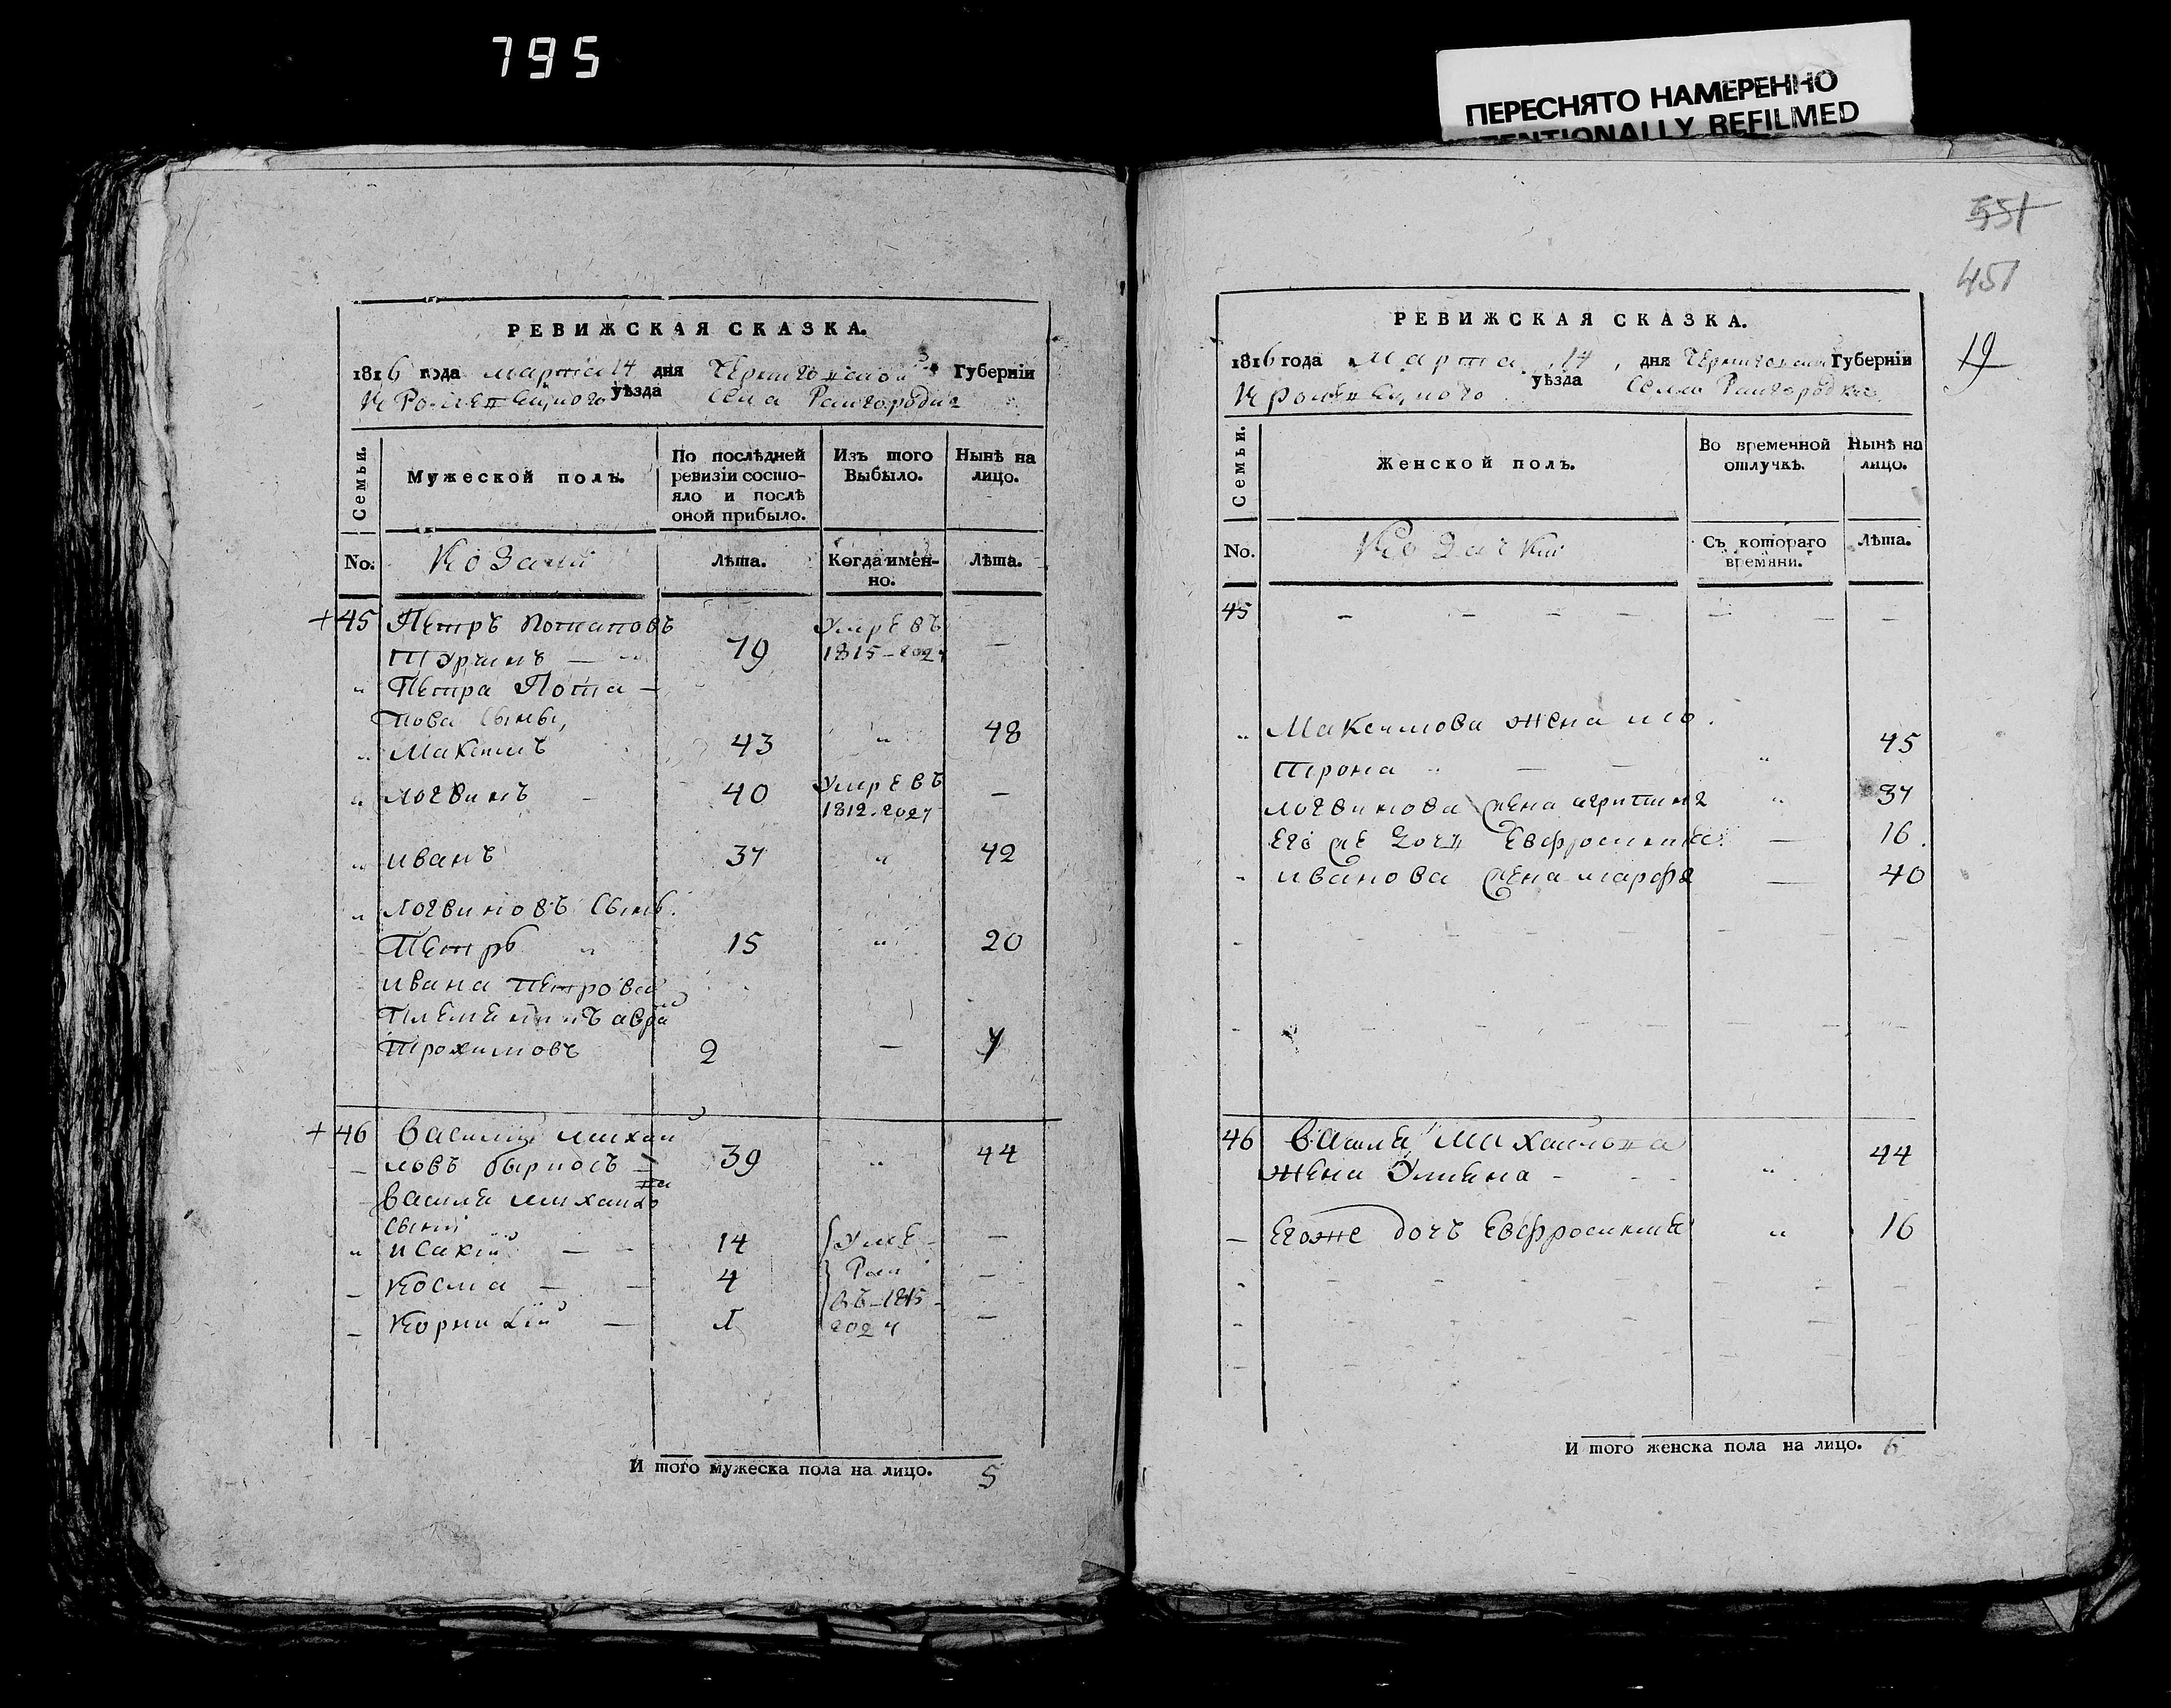 795
ПЕРЕСНЯТО НАМЕРЕННО
INTENTIONALLY REFILMED
551
451
19
РЕВИЖСКАЯ СКАЗКА.
1816 года марта 14 дня Черниговской Губерніи
Кролевецкого уѣзда села Райгородка
Семьи.
Мужеской полъ.
По послѣдней ревизіи состояло и послѣ оной прибыло.
Изъ того Выбыло.
Нынѣ на лицо.
No. Козаки Лѣта. Когда имен-но. Лѣта.
45 Петръ Потаповъ Умре въ
Турчинъ — 79 1815 году —
Петра Пота-
пова сыны,
Максимъ 43 " 48
Логвинъ 40 Умре въ —
1812 году
Иванъ 37 " 42
Логвиновъ сынъ
Петръ " 15 " 20
Ивана Петрова
племенникъ
Трохимовъ 2 — 7
46 Василий Михай
ловъ 39 " 44
Василия Михайло
сыни
Исакій — 14 Уме —
Косма — 4 Рли —
въ 1815
Корнилій — году —
И того мужеска пола на лицо. 5
РЕВИЖСКАЯ СКАЗКА.
1816 года Марта 14 дня Черниговской Губерніи
Кролевецкого уѣзда Села Райгородка
Семьи.
Женской полъ.
Во временной отлучкѣ.
Нынѣ на лицо.
No. Козачки Съ котораго времяни. Лѣта.
45 — — — — — —
Максимова жена мо
трона " — — " 45
Логвинова жена агрипина " 37
его же дочь Евфросиния — 16
Иванова жена марфа — 40
46 Василия Михайлова
жена Улияна - " 44
Егоже дочъ Евфросиния " 16
И того женска пола на лицо. 6